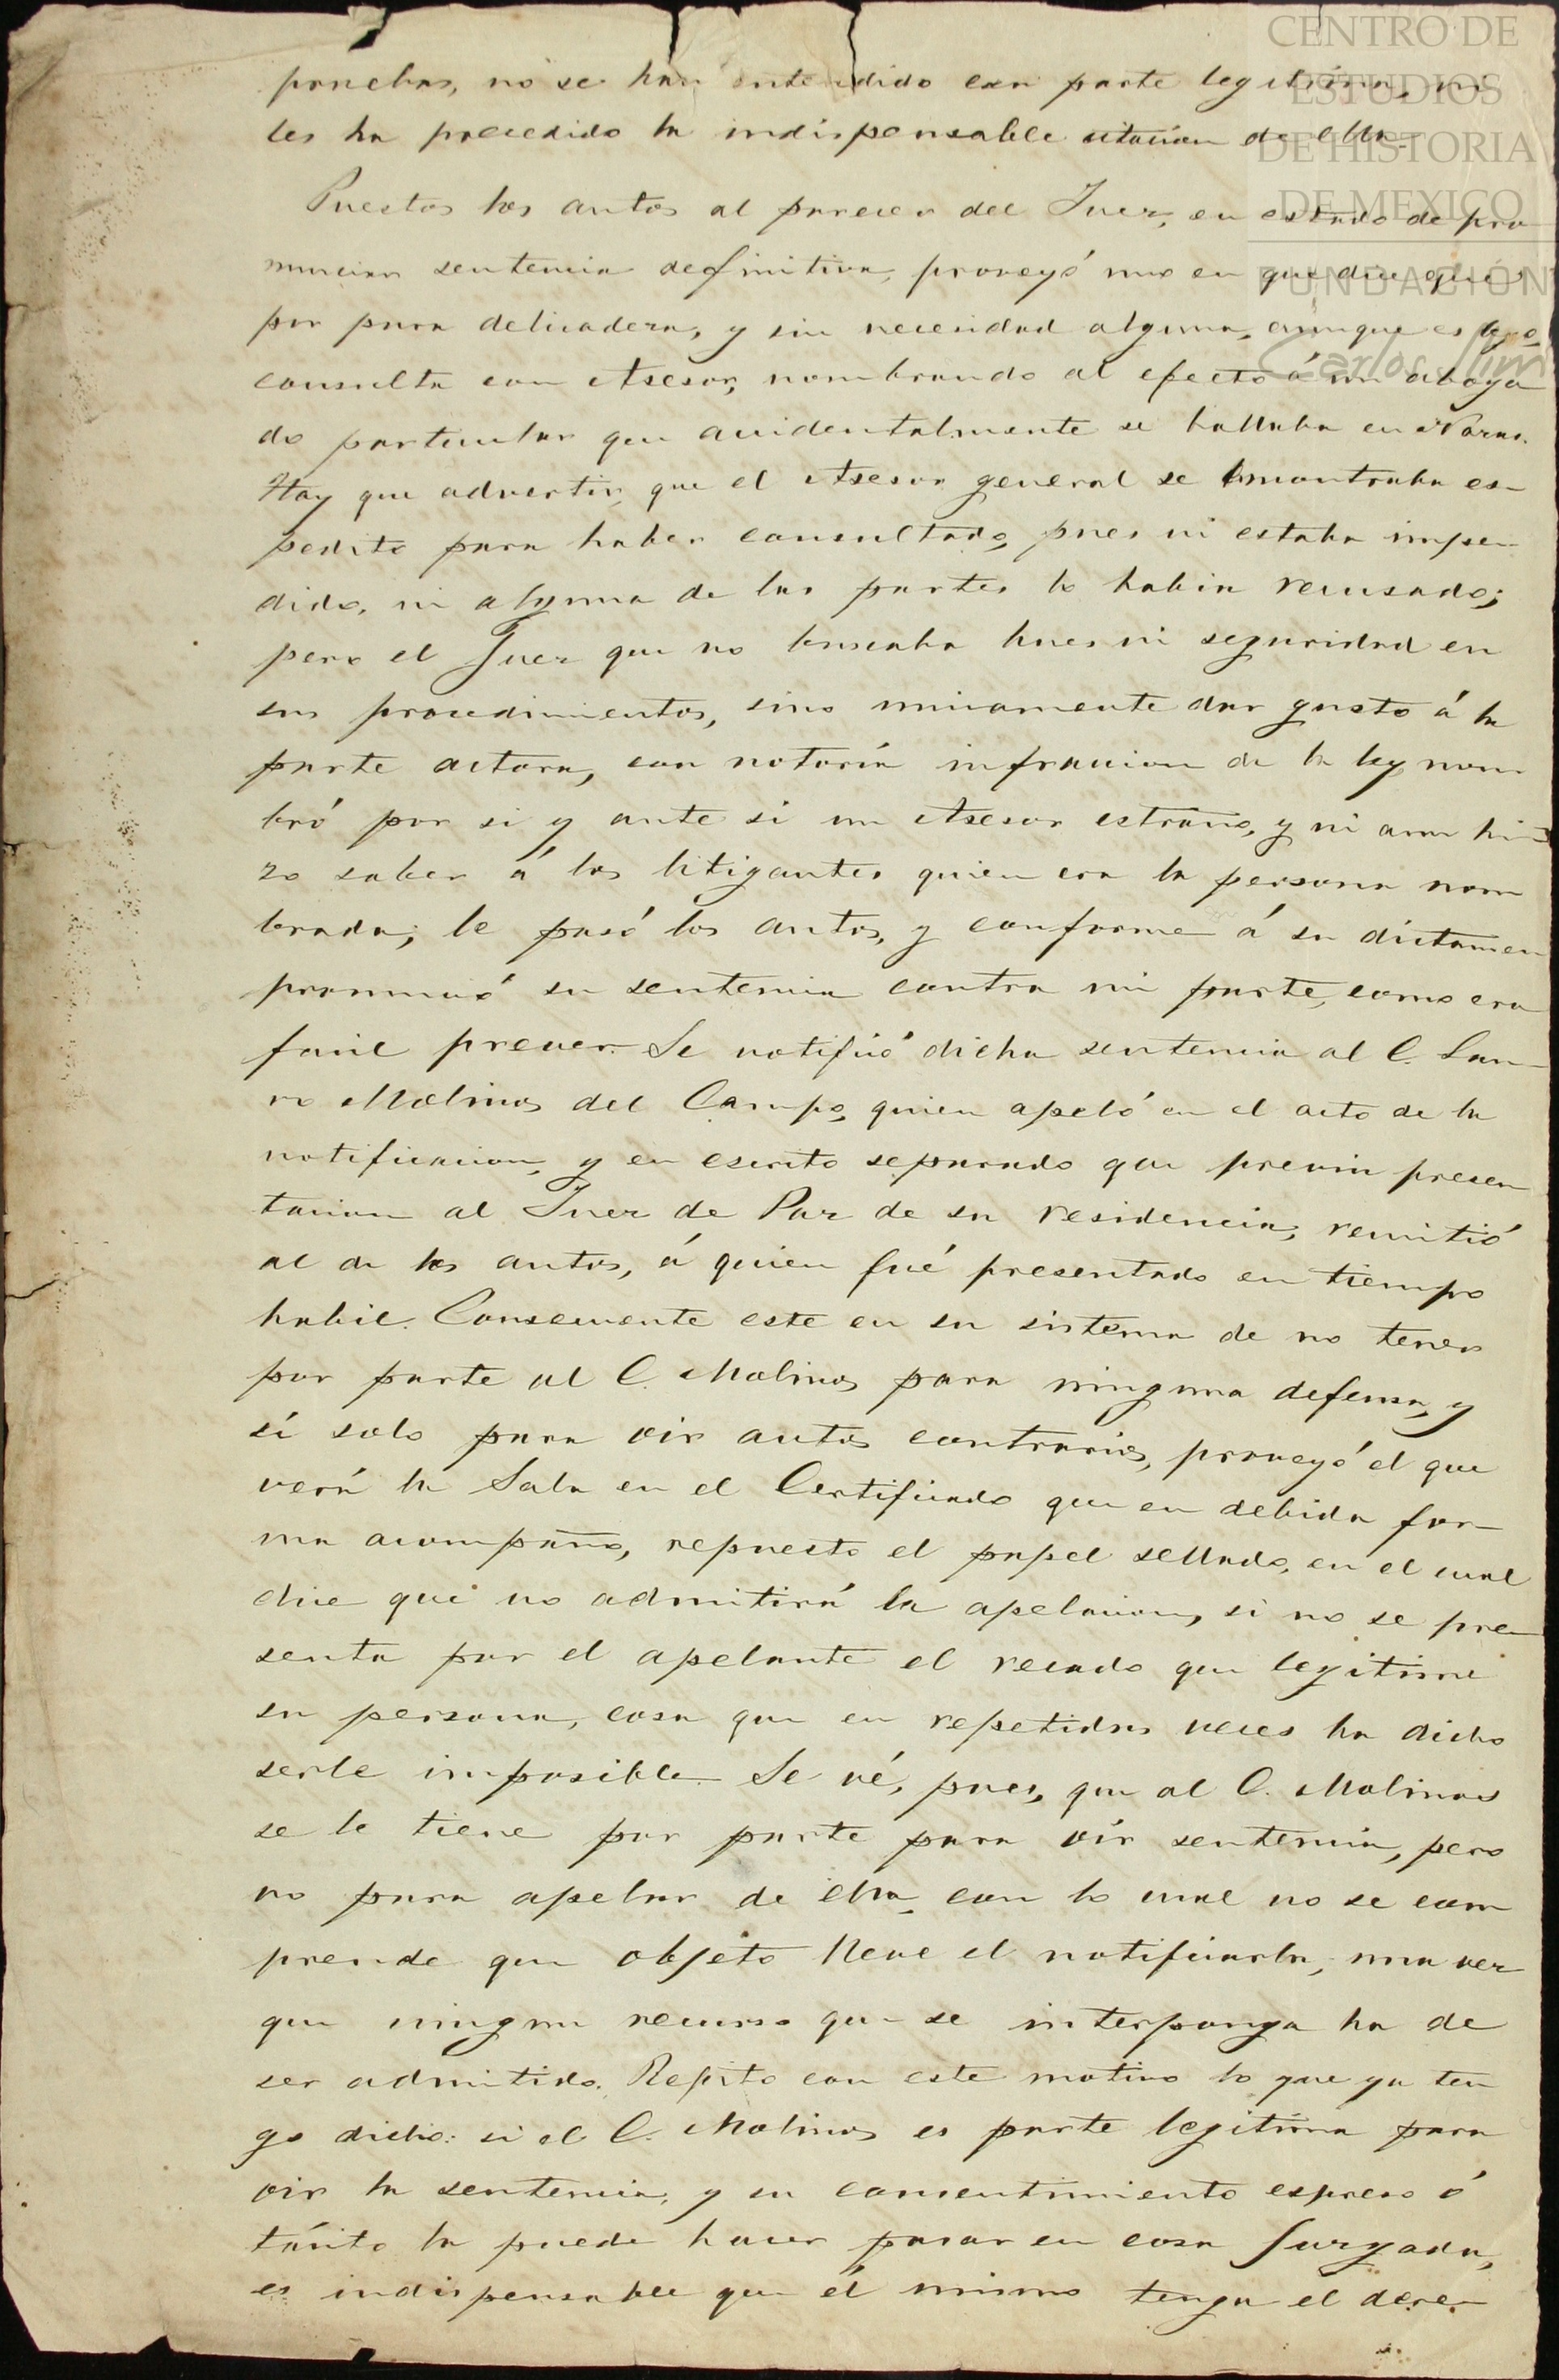 pruebas, no se han entendido con parte legitima, ni
les ha precedido la indispensable citacion de ella.
Puestos los autos al parecer del Juez, en estado de pro
nunciar sentencia definitiva, proveyó uno en que dice que
por pura delicadeza, y sin necesidad alguna, aunque es lego,
consulta con Asesor, nombrando al efecto á un aboga
do particular que accidentalmente se hallaba en
Hay que advertir, que el Asesor general se encontraba es-
pedito para haber consultado, pues ni estaba impe-
dido, ni alguna de las partes lo habia recusado;
pero el Juez que no buscaba luces ni seguridad en
sus procedimientos, sino unicamente dar gusto á la
parte actora, con notoria infraccion de la ley nom
bró por si y ante si un Asesor estraño, y ni aun hi-
zo saber á los litigantes quien era la persona nom
brada; le pasó los autos, y conforme á su dictamen
pronunció su sentencia contra mi parte, como era
facil preveer. Se notificó dicha sentencia al C. Lau-
ro Molinos del Campo, quien apeló en el acto de la
notificacion, y en escrito separado que previa presen
tacion al Juez de Paz de su residencia, remitió
al de los autos, á quien fué presentado en tiempo
habil. Consecuente este en su sistema de no tener
por parte al C. Molinos para ninguna defensa, y
sí solo para oir autos contrarios, proveyó el que
verá la Sala en el Certificado que en debida for-
ma acompaño, repuesto el papel sellado, en el cual
dice que no admitirá la apelacion, si no se pre-
senta por el apelante el recado que legitime
su persona, cosa que en repetidas veces ha dicho
serle imposible. Se vé, pues, que al C. Molinos
se le tiene por parte para oir sentencia, pero
no para apelar de ella, con lo cual no se com
prende que objeto lleve el notificarla, una vez
que ningun recurso que se interponga ha de
ser admitido. Repito con este motivo lo que ya ten
go dicho: si el C. Molinos es parte legitima para
oir la sentencia, y su consentimiento espreso ó
tácito la puede hacer pasar en cosa juzgada,
es indispensable que él mismo tenga el dere-
CENTRO DE
ESTUDIOS
DE HISTORIA
DE MEXICO
FUNDACIÓN
Carlos Slim